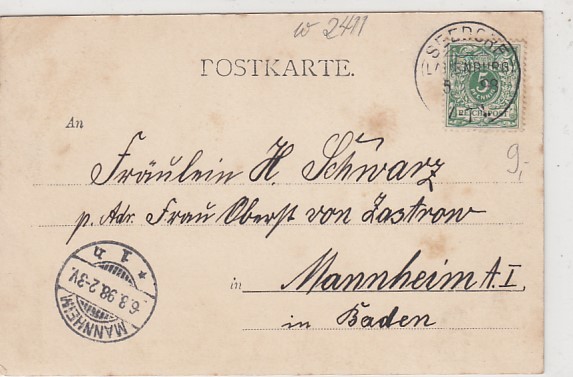 w 2411
POSTKARTE.
5
REICHSPOST
An
9,-
Fräulein H. Schwarz
p. Adr. Frau Oberst von Zastrow
in Mannheim A.I.
in Baden
MANNHEIM
6.3.98.2-3V.
* 1 h